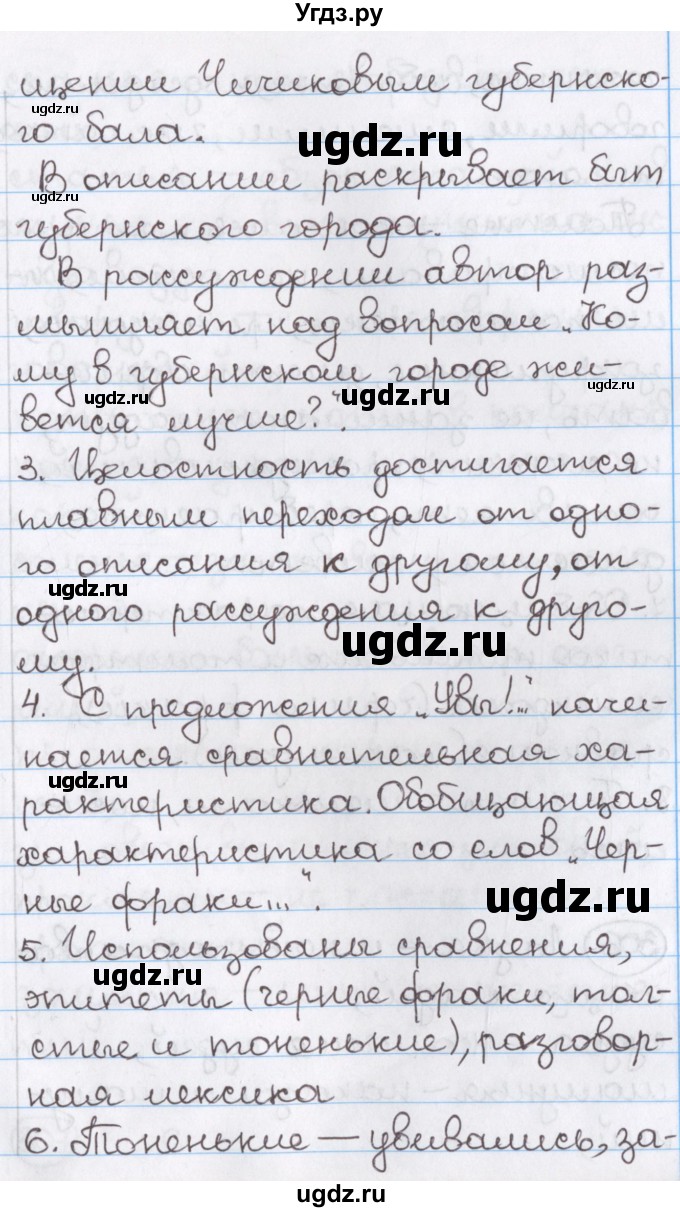 Угдз.ру
щении Чичиковым губернско-
ugdz.ru
го бала.
ugdz.ru
В описании раскрывает быт
губернского города.
ugdz.ru
В рассуждении автор раз-
мышляет над вопросом „Ко-
му в губернском городе жи-
ugdz.ru
ugdz.ru
вется лучше?".
3. Целостность достигается
плавным переходом от одно-
го описания к другому, от
ugdz.ru
одного рассуждения к друго-
ugdz.ru
му.
4. С предложения „Увы!.." начи-
нается сравнительная ха-
ugdz.ru
рактеристика. Обобщающая
характеристика со слов „Чер-
ные фраки...".
ugdz.ru
5. Использованы сравнения,
ugdz.ru
эпитеты (черные фраки, тол-
стые и тоненькие), разговор-
ная лексика
6. Тоненькие — увивались, за-
ugdz.ru